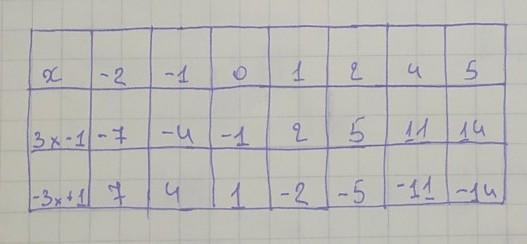 x -2 -1 0 1 2 4 5
3x-1 -7 -4 -1 2 5 11 14
-3x+1 7 4 1 -2 -5 -11 -14